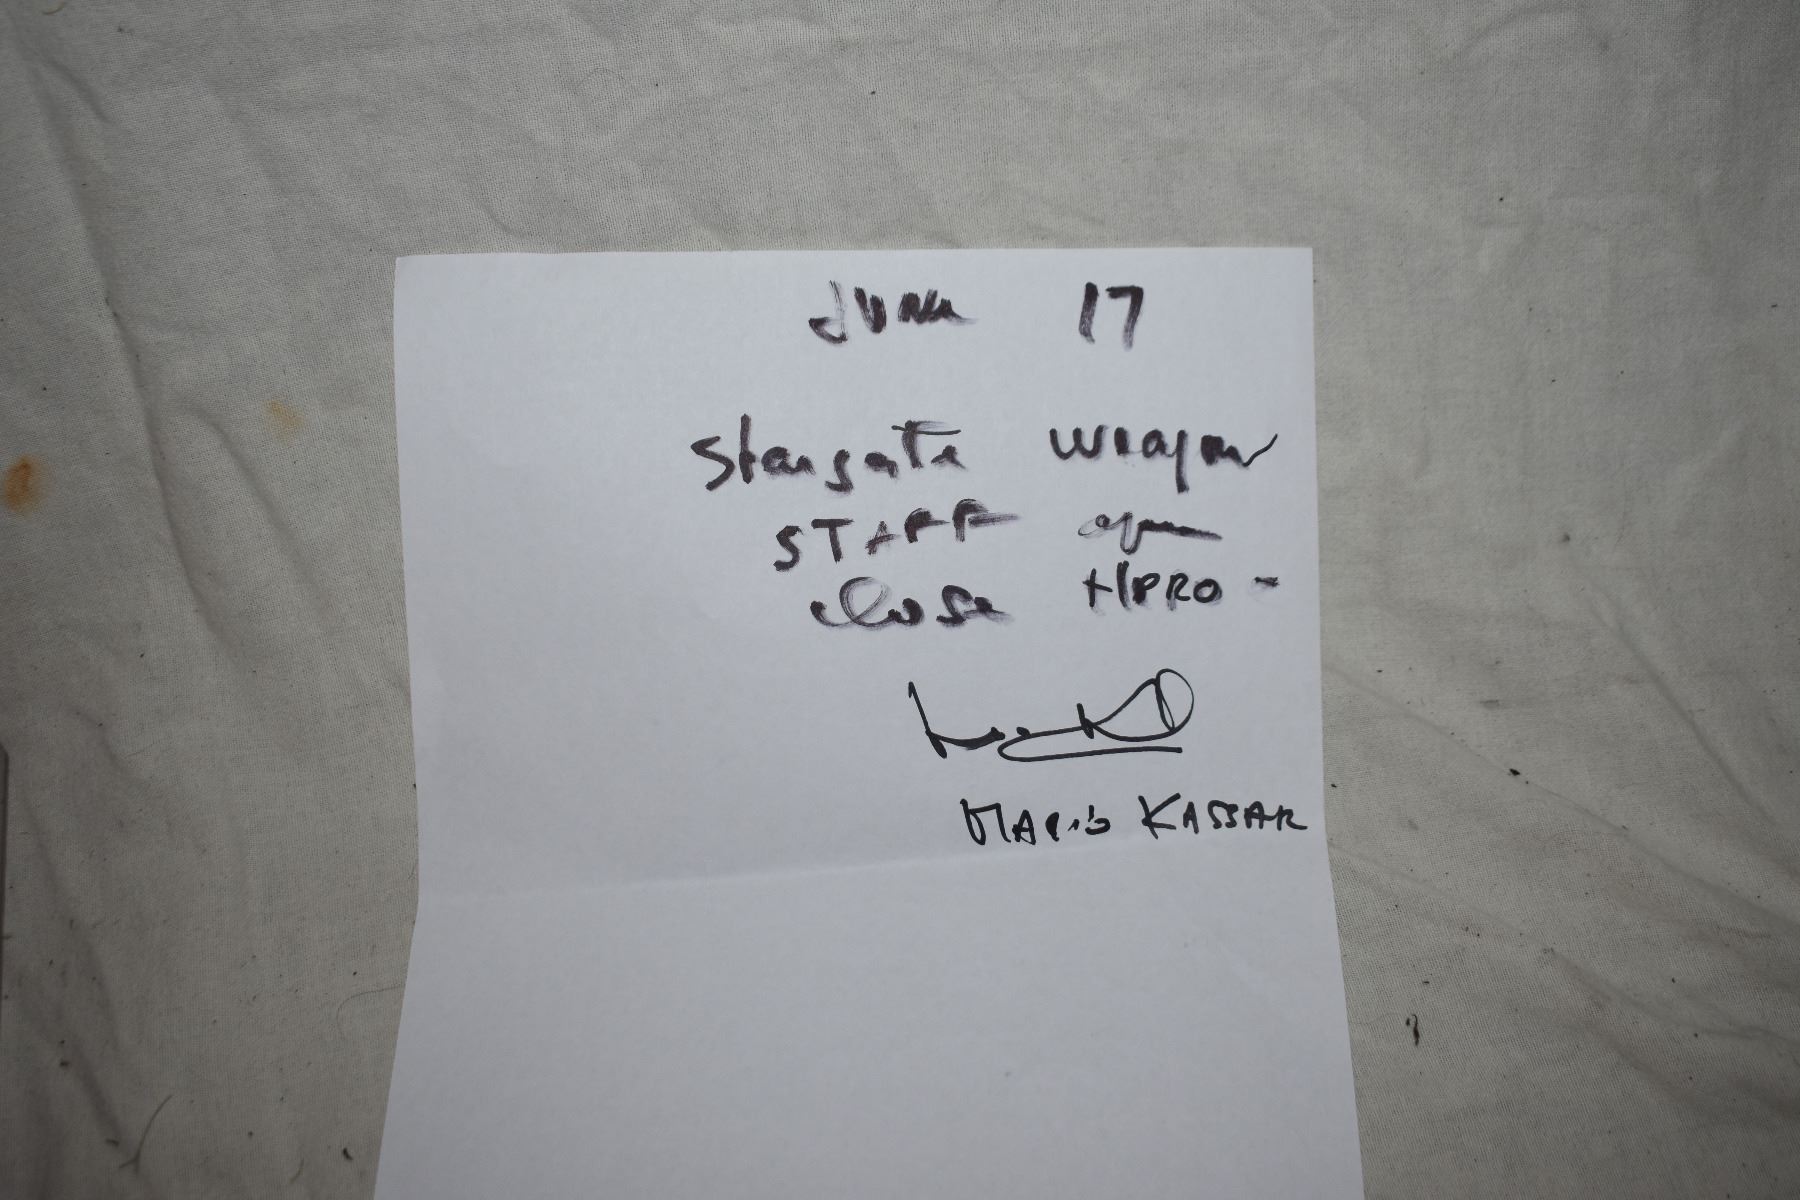 June 17
Stargate weapon
STAFF open
close HPRO -
MARIO KASSAR